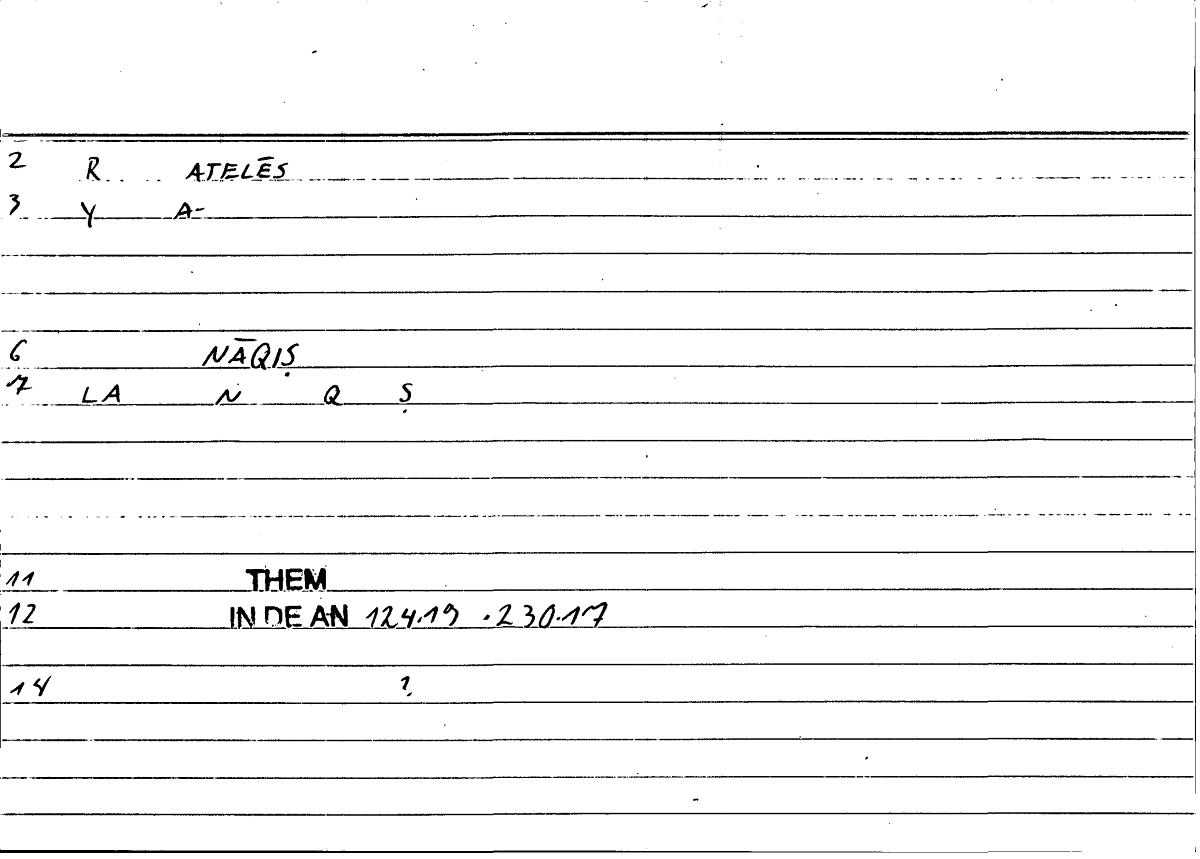 2 R ATELĒS
3 Y A-
6 NĀQIṢ
7 LA N Q Ṣ
11 THEM
12 IN DE AN 124.19 .230.17
14 ?